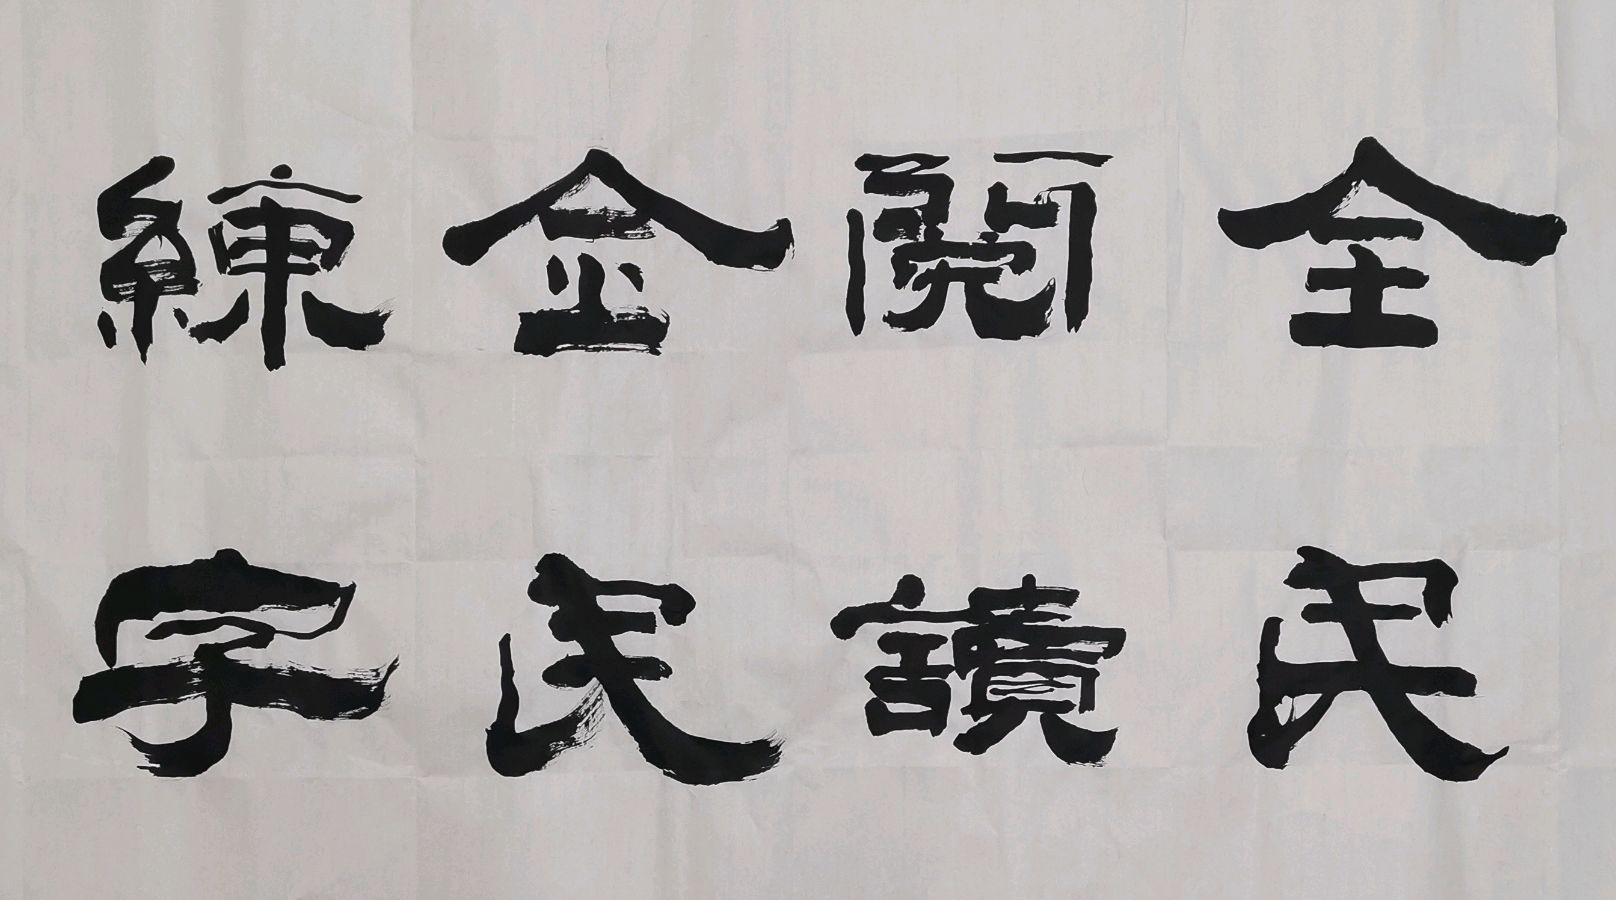 全民
閱讀
全民
練字